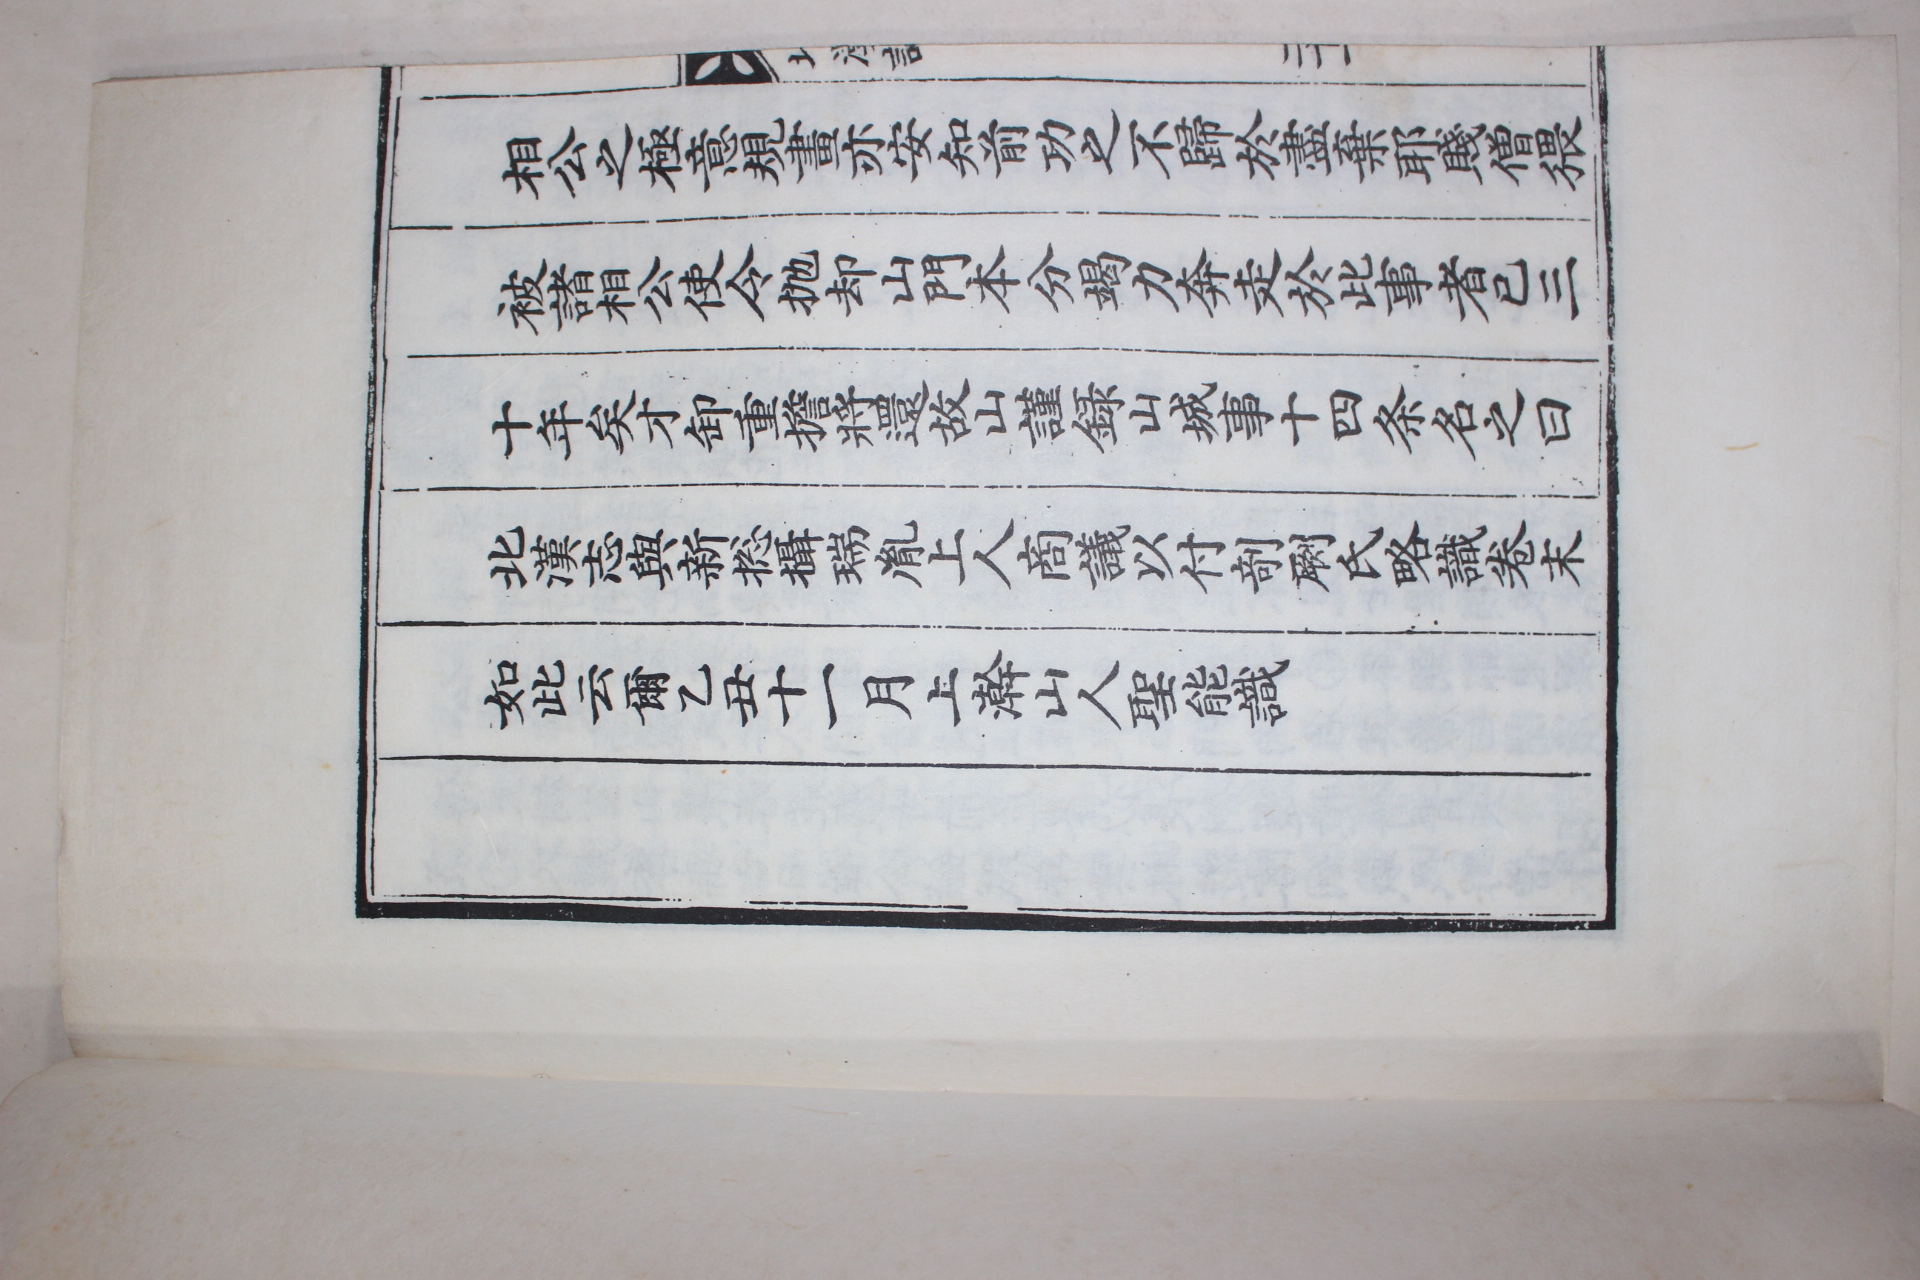 北漢誌 二十
相公之極意規畫亦安知前功之不歸於盡棄耶賤僧猥
被諸相公使令抛却山門本分竭力奔走於此事者已三
十年矣才卸重擔將還故山謹錄山城事十四条名之曰
北漢志與新捴攝瑞胤上人商議以付剞劂氏略識卷末
如此云爾乙丑十一月上澣山人聖能識